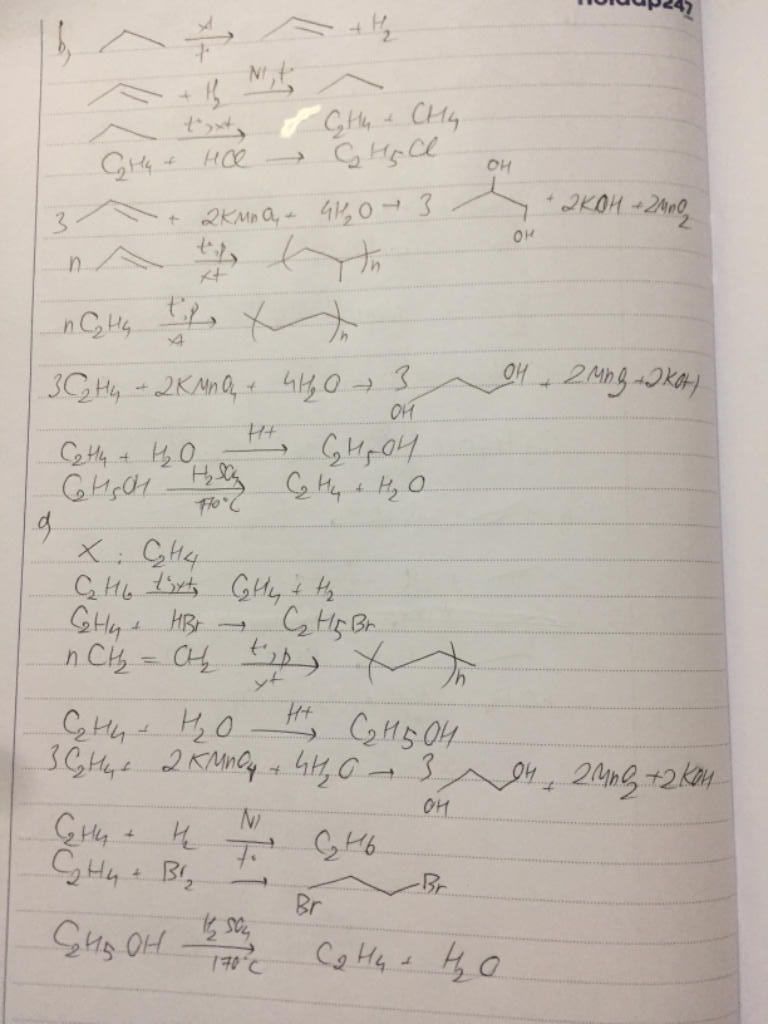 hoidap247
b, xt t° + H2
+ H2 Ni, t°
t°, xt C2H4 + CH4
C2H4 + HCl → C2H5Cl
3 + 2KMnO4 + 4H2O → 3 OH OH + 2KOH + 2MnO2
n t°, p xt ( )n
nC2H4 t°, p xt ( )n
3C2H4 + 2KMnO4 + 4H2O → 3 OH OH + 2MnO2 + 2KOH
C2H4 + H2O H+ → C2H5OH
C2H5OH H2SO4 170°C C2H4 + H2O
X : C2H4
C2H6 t°, xt C2H4 + H2
C2H4 + HBr → C2H5Br
nCH2 = CH2 t°, p xt ( )n
C2H4 + H2O H+ → C2H5OH
3C2H4 + 2KMnO4 + 4H2O → 3 OH OH + 2MnO2 + 2KOH
C2H4 + H2 Ni t° C2H6
C2H4 + Br2 → Br Br
C2H5OH H2SO4 170°C C2H4 + H2O